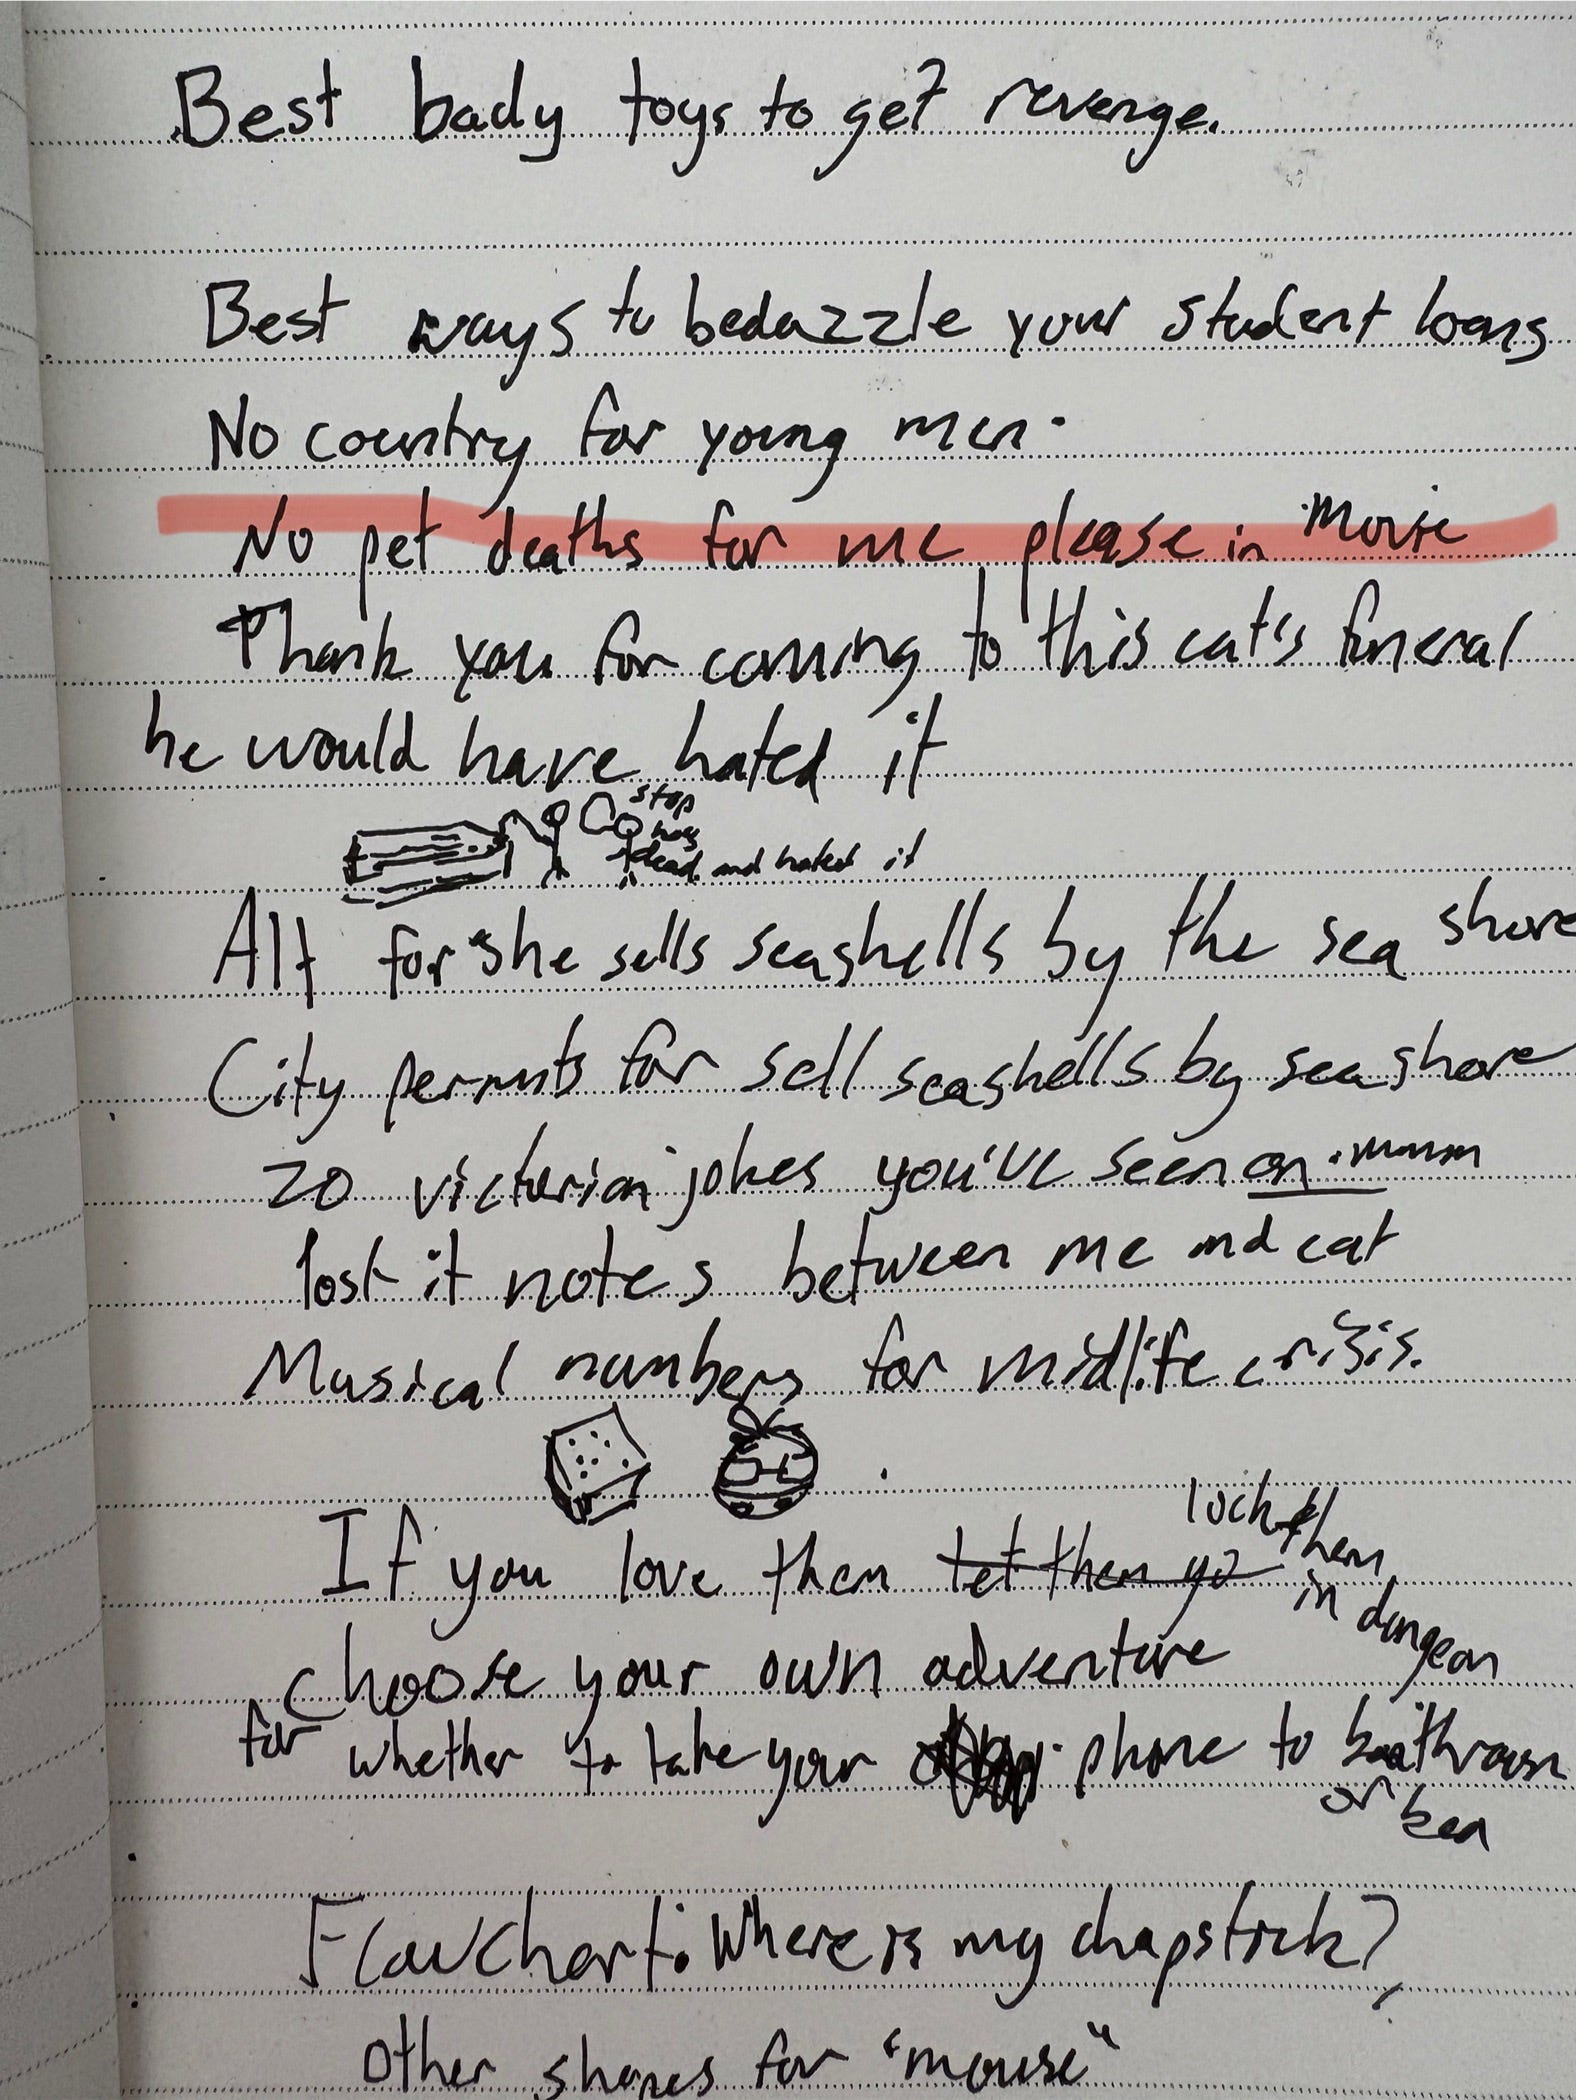 Best bady toys to get revenge.
Best ways to bedazzle your student loans
No country for young men.
No pet deaths for me please in movie
Thank you for coming to this cat's funeral
he would have hated it
stop
hes
dead and hated it
Alt for "she sells seashells by the sea shore
City permits for sell seashells by seashore
20 victorian jokes you've seen on
lost it notes between me and cat
Musical numbers for midlife crisis.
If you love them let them go lock them
in dungeon
choose your own adventure
for whether to take your phone to bathroom
or
Flowchart: Where is my chapstick?
Other shapes for "mouse"